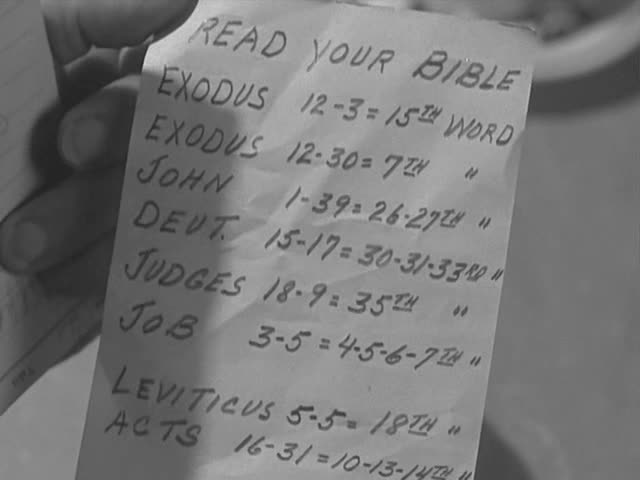 READ YOUR BIBLE
EXODUS 12-3=15TH WORD
EXODUS 12-30=7TH "
JOHN 1-39=26-27TH "
DEUT. 15-17=30-31-33RD "
JUDGES 18-9=35TH "
JOB 3-5=4-5-6-7TH "
LEVITICUS 5-5=18TH "
ACTS 16-31=10-13-14TH "